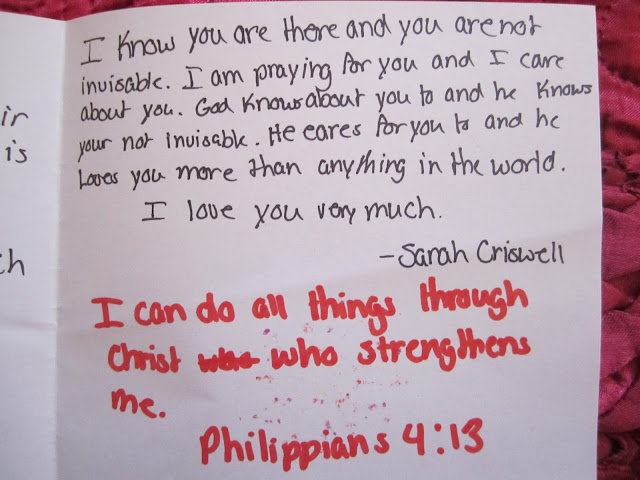 I know you are there and you are not
invisable. I am praying for you and I care
about you. God knows about you to and he knows
your not invisable. He cares for you to and he
Loves you more than anything in the world.
I love you very much.
-Sarah Criswell
I can do all things through
Christ who strengthens
me.
Philippians 4:13
ir
is
ch